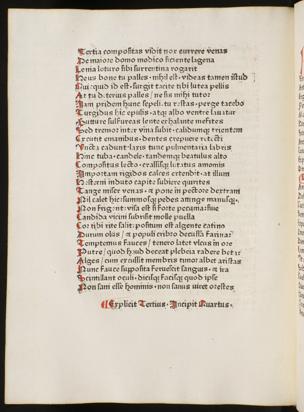 Tertia compositas vidit nox currere venas
De maiore domo modice sitiente lagena
Lenia loturo sibi surrentina rogavit
Heus bone tu palles · nihil est · videas tamen istud
Qui· quid id est · surgit tacite tibi lutea pellis
At tu deterius palles / ne sis mihi tutor
Iam pridem hunc sepeli· tu restas · perge tacebo
Turgidus hic epulis · atque albo ventre lavatur
Gutture sulfureas lente exhalante mefites
Sed tremor inter vina subit · calidumque trientem
Excutit emanibus · dentes crepuere retecti
Uncta cadunt laxis tunc pulmentaria labris
Hinc tuba · candele· tandemque beatulus alto
Compositus lecto · crassisque lutatus amomis
In portam rigidos calces extendit · at illum
Hesterni induto capite subiere quirites
Tange miser venas · et pone in pectore dextram
Nil calet hic· summosque pedes attinge manusque·
Non frigent· visa est si forte pecunia· sive
Candida vicini subrisit molle puella
Cor tibi rite salit· positum est algente catino
Durum olus / et populi cribro decussa farina·
Temptemus fauces / tenero latet ulcus in ore
Putre / quod haud deceat plebeia radere beta
Alges / cum excussit membris timor albus aristas
Nunc face supposita fervescit sanguis · et ira
Scintillant oculi · dicisque facisque quod ipse
Non sani esse hominis · non sanus iuret orestes
Explicit Tertius · Incipit Quartus ·